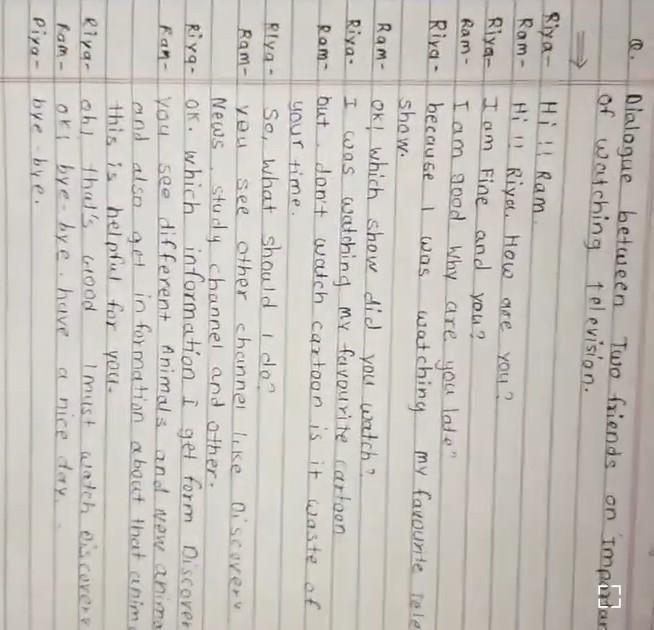 Q. Dialogue between Two friends on Importan
of watching television.
Riya- Hi !! Ram.
Ram- Hi !! Riya. How are you?
Riya- I am Fine and you?
Ram- I am good why are you late?
Riya- because I was watching my favourite Tele
show.
Ram- OK! which show did you watch?
Riya- I was watching my favourite cartoon
Ram- but, don't watch cartoon is it waste of
your time.
Riya- So, what should I do?
Ram- you see other channel like Discovery
News, study channel and other.
Riya- OK. which information I get form Discover
Ram- you see different Animals and New anima
and also get information about that anim
this is helpful for you.
Riya- oh! that's Good I must watch Discovery
Ram- OK! bye-bye. have a nice day.
Riya- bye-bye.